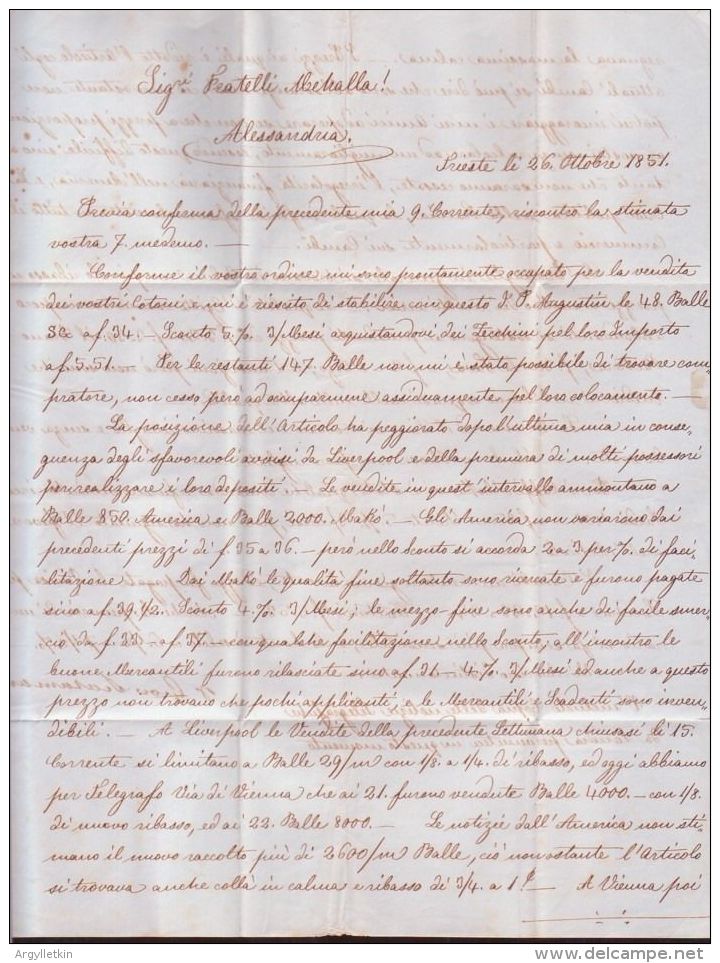 Sigri Fratelli Mehalla!
Alessandria.
Trieste li 26. Ottobre 1851.
Previa conferma della precedente mia 9. Corrente, riscontro la stimata
vostra 7. medemo. —
Conforme il vostro ordine mi sono prontamente occupato per la vendita
dei vostri Cotoni e mi è riescito di stabilire con questo J. P. Augustin le 48. Balle
SG a f. 34 — Sconto 5.% 3/Mesi acquistandovi dei Zecchini pel loro Importo
a f. 5.51. — Per le restanti 147. Balle non mi è stato possibile di trovare com=
pratore, non cesso però ad occuparmene assiduamente pel loro colocamento. —
La posizione dell'Articolo ha peggiorato dopo l'ultima mia in conse=
guenza degli sfavorevoli avvisi da Liverpool e della premura di molti possessori
per realizzare i loro depositi. — Le vendite in quest'intervallo ammontano a
Balle 850. America e Balle 2000. Makó. — Gli America non variarono dai
precedenti prezzi di f. 35 a 36. — però nello Sconto si accorda 2 a 3. per %. di faci=
litazione. Dai Makó le qualità fine soltanto sono ricercate e furono pagate
sino a f. 39.1/2. Sconto 4.% 3/Mesi; le mezzo-fine sono anche di facile smer=
cio da f. 33. — a f. 37. — con qualche facilitazione nello Sconto, all'incontro le
buone Mercantili furono rilasciate sino a f. 31. — 4.% 3/Mesi ed anche a questo
prezzo non trovano che pochi applicanti, — le Mercantili e Scadenti sono inven=
dibili. — A Liverpool le Vendite della precedente Settimana chiusasi li 15.
Corrente si limitano a Balle 29/m con 1/8. a 1/4. di ribasso, ed oggi abbiamo
per Telegrafo Via di Vienna che ai 21. furono vendute Balle 4000. — con 1/8.
di nuovo ribasso, ed ai 22. Balle 8000. — Le notizie dall'America non sti=
mano il nuovo raccolto più di 2600/m Balle, ciò nonostante l'Articolo
si trovava anche collà in calma e ribasso di 3/4. a 1. — A Vienna poi
Argylletkin
delcampe.net